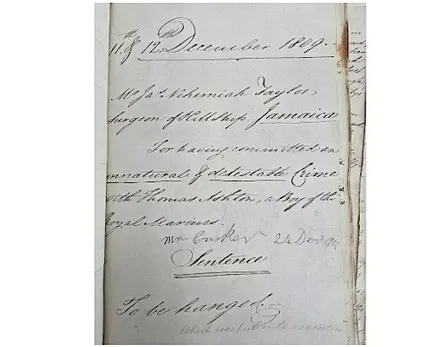 11th & 12th December 1809.
Mr Jas. Nehemiah Taylor
Surgeon of H.M. Ship, Jamaica
For having committed an
unnatural & detestable Crime
with Thomas Ashton, a Boy of the
Royal Marines.
Mr 24 Decr
Sentence
To be hanged
which was put into execution